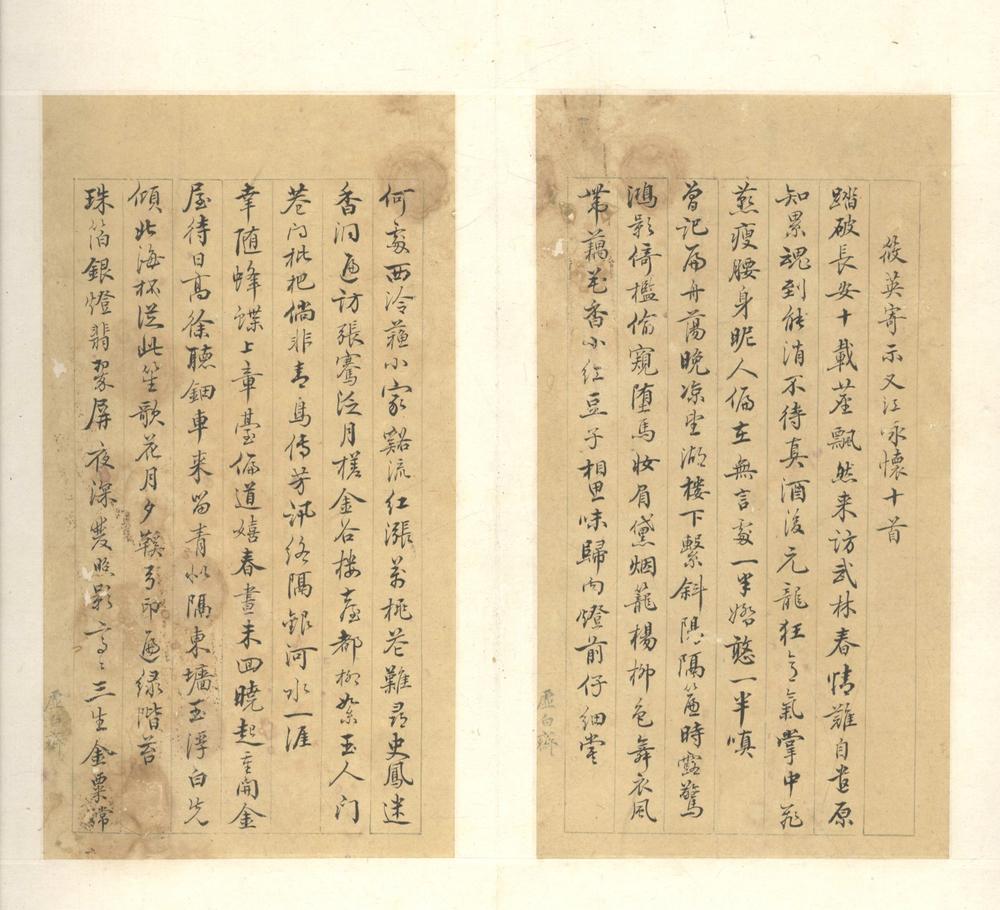 筱英寄示又江咏懷十首
踏破長安十載塵飄然来访武林春情難自遣原
知累魂到能消不待真酒後元龍狂意氣掌中飛
燕瘦腰身昵人偏在無言處一半嬌憨一半嗔
曾記扁舟蕩晚凉望湖楼下繫斜陽隔簾時露驚
鴻影倚檻偷窺堕馬妝眉黛烟籠楊柳色舞衣風
带藕花香小红豆子相思味歸向燈前仔细嘗
何處西泠蘇小家谿流红漲萬桃花難尋史鳳迷
香洞遍访張騫泛月槎金谷楼臺都柳絮玉人门
巷门枇杷倘非青鳥传芳訊终隔銀河水一涯
幸随蜂蝶上章臺偏道嬉春晝未回曉起重開金
屋待日高徐聽鈿車来留青似隔東墻玉浮白先
傾北海杯從此笙歌花月夕鞵弓印遍绿階苔
珠箔銀燈翡翠屏夜深雙照影亭亭三生金粟常
虚白齋
虚白齋